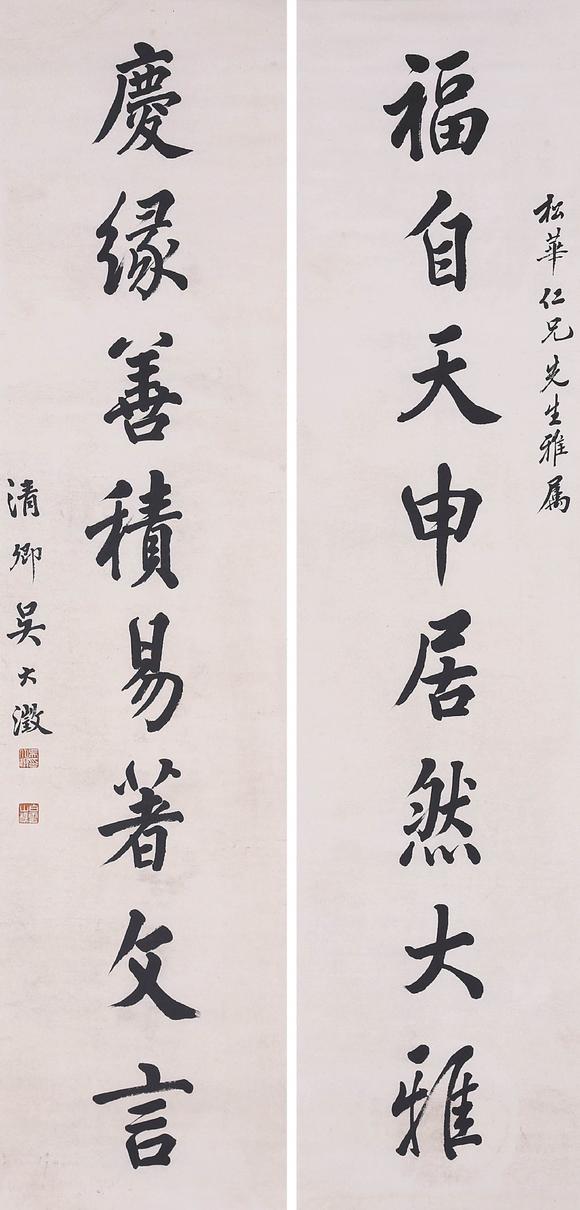 松華仁兄先生雅属
福自天申居然大雅
慶緣善積易著文言
清卿吳大澂